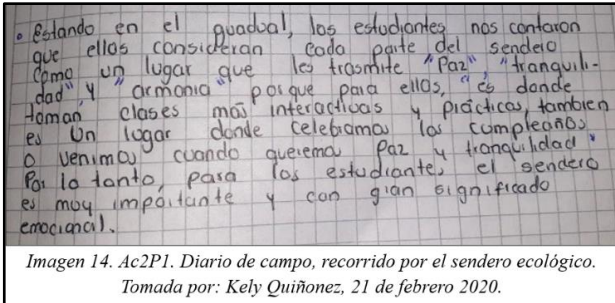 • Estando en el guadual, los estudiantes nos contaron
que ellos consideran cada parte del sendero
como un lugar que les trasmite "Paz", "tranquili-
dad" y "armonia" porque para ellos, "es donde
toman clases más interactivas y prácticas, tambien
es un lugar donde celebramos los cumpleaños
o venimos cuando queremos paz y tranquilidad".
Por lo tanto, para los estudiantes el sendero
es muy importante y con gran significado
emocional.
Imagen 14. Ac2P1. Diario de campo, recorrido por el sendero ecológico.
Tomada por: Kely Quiñonez, 21 de febrero 2020.